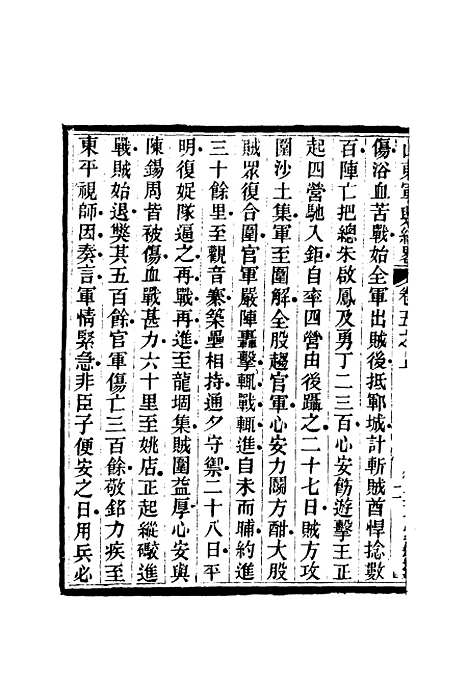 山東軍興紀畧 卷五之上
傷浴血苦戰始全軍出賊後抵鄆城計斬賊酋悍捻數
百陣亡把總朱啟鳳及勇丁二三百心安飭遊擊王正
起四營馳入鉅自率四營由後躡之二十七日賊方攻
圍沙土集軍至圍解全股趨官軍心安力鬬方酣大股
賊眾復合圍官軍嚴陣轟擊輒戰輒進自未而晡約進
三十餘里至觀音寨築壘相持通夕守禦二十八日平
明復娖隊逼之再戰再進至龍堌集賊圍益厚心安與
陳錫周皆被傷血戰甚力六十里至姚店正起縱礮進
戰賊始退斃其五百餘官軍傷亡三百餘敬銘力疾至
東平視師因奏言軍情緊急非臣子便安之日用兵必